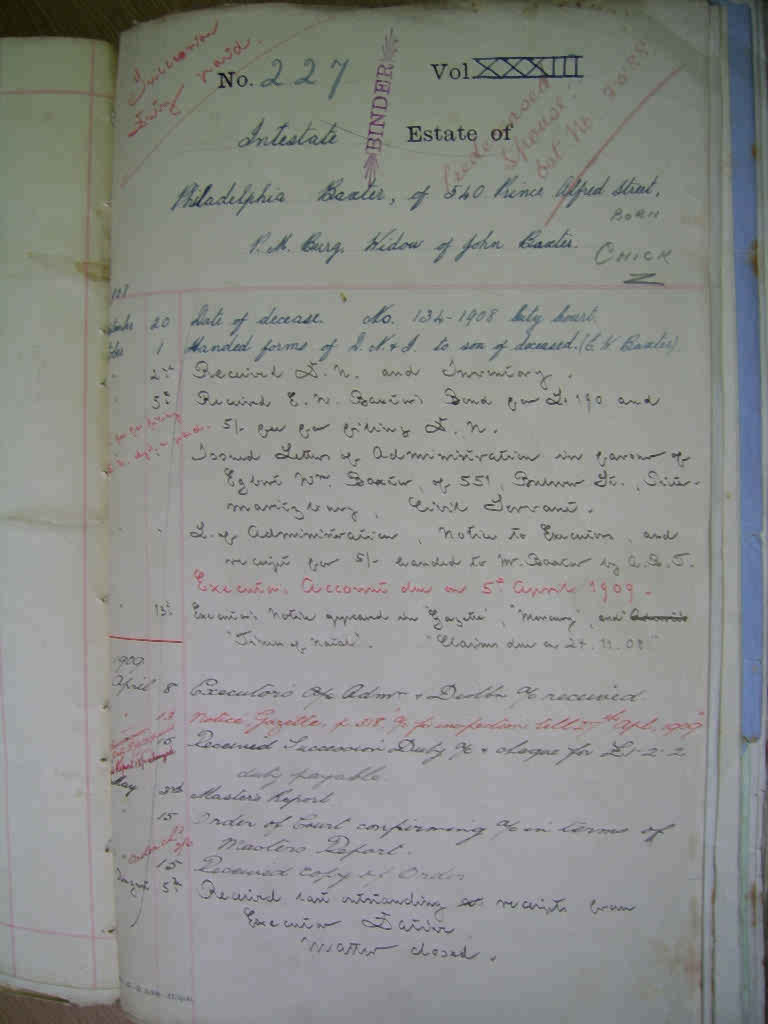 Succession
Duty paid.
No. 227
BINDER
Vol. XXXIII
Intestate Estate of
Predeceased
Spouse:
Est No.
Philadelphia Baxter, of 540 Prince Alfred Street,
P. M. Burg. Widow of John Baxter.
BORN
CHICK
20 Date of decease. No. 134-1908 City Court.
1 Handed forms of D. N & I. to son of deceased. (E. W. Baxter).
" 2nd Received D. N. and Inventory.
" 5th Received E. W. Baxter's Bond for £190 and
5/- fee for filing D. N.
Issued Letters of Administration in favour of
Egbert Wm. Baxter, of 551, Bulwer St., Pieter-
maritzburg, Civil Servant.
" " L. of Administration, Notice to Executors, and
receipt for 5/- handed to Mr. Baxter by
Executor's Account due on 5th April 1909.
" 13th Executor's Notice appeared in "Gazette", "Mercury", and
"Times of Natal". "Claims due on 24.11.08"
1909
April 8 Executor's a/c Admn & Distbn a/c received
" 13 Notice, Gazette, p 318 a/c for inspection till 27th Apl, 1909
" 15 Received Succession Duty a/c & cheque for £1-2-2
duty payable.
May 3rd Master's Report
15 Order of Court confirming a/c in terms of
Masters Report.
" 15 Received copy of Order
August 5th Received last outstanding receipts from
Executor Dative
Matter closed.